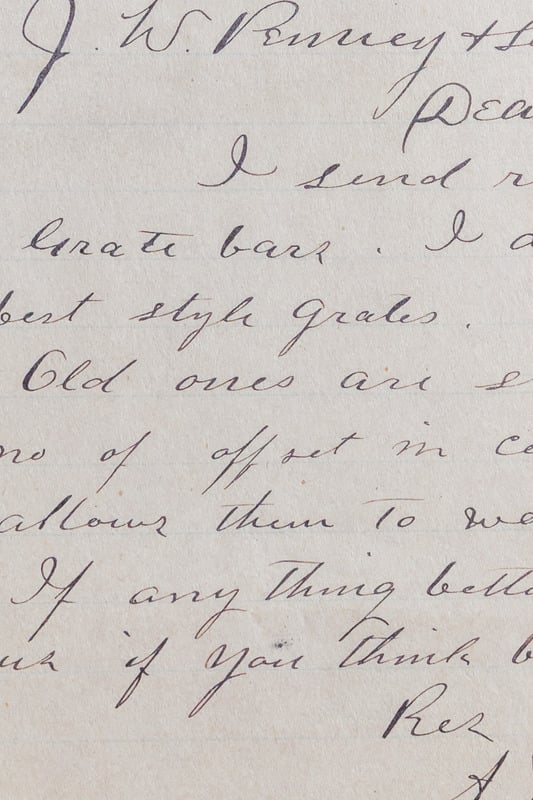 J. W. Penney + So
Dea
I send r
Grate bars . I a
best style grates .
Old ones are s
no of offset in ce
allows them to we
If any thing bette
us if you think b
Res
A